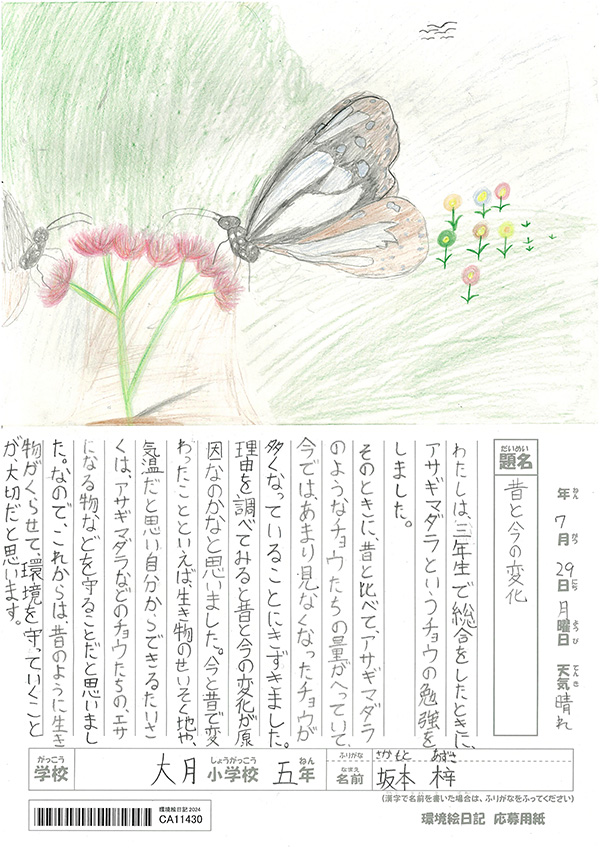 年 7月 29日 月曜日 天気 晴れ
ねん がつ にち ようび てんき
だいめい
題名
昔と今の変化
わたしは、三年生で総合をしたときに、
アサギマダラというチョウの勉強を
しました。
そのときに、昔と比べて、アサギマダラ
のようなチョウたちの量がへっていて、
今では、あまり見なくなったチョウが
多くなっていることにきずきました。
理由を調べてみると昔と今の変化が原
因なのかなと思いました。今と昔で変
わったことといえば、生き物のせいそく地や、
気温だと思い自分からできるたいさ
くは、アサギマダラなどのチョウたちの、エサ
になる物などを守ることだと思いまし
た。なので、これからは、昔のように生き
物がくらせて、環境を守っていくこと
が、大切だと思います。
がっこう しょうがっこう ねん
学校 大月 小学校 五年
ふりがな さかもと あずさ
なまえ
名前 坂本 梓
(漢字で名前を書いた場合は、ふりがなをふってください)
環境絵日記2024
CA11430
環境絵日記 応募用紙